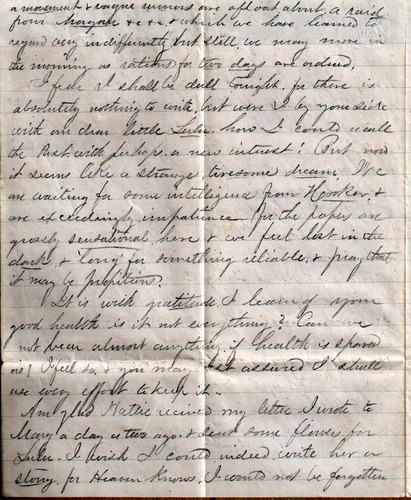 a movement & vague rumors are afloat about a raid
from Morgan &c &c, which we have learned to
regard very indifferently, but still we may move in
the morning as rations for two days are ordered.
I fear I shall be dull tonight, for there is
absolutely nothing to write, but were I by your side
with our dear little Lulu, how I could recall
the Past with perhaps a new interest! But now
it seems like a strange tiresome dream. We
are waiting for some intelligence from Hooker, &
are exceedingly impatient for the papers are
grossly sensational here & we feel lost in the
dark & "long" for something reliable, & pray that
it may be propitious.
It is with gratitude I learn of your
good health is it not everything? Can we
not bear almost anything if health is spared
us! I feel so, & you may rest assured I shall
use every effort to keep it.
Am glad Hattie received my letter I wrote to
Mary a day or two ago & sent some flowers for
Lulu. I wish I could indeed write her a
story, for Heaven knows, I would not be forgotten